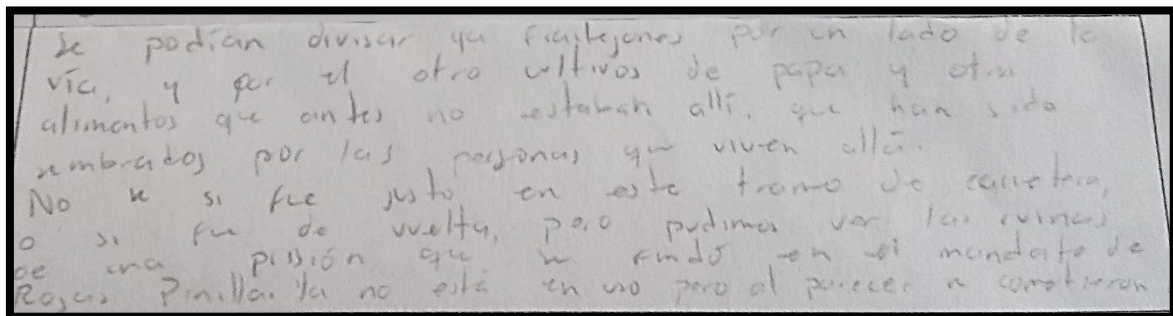 Se podían divisar ya frailejones por un lado de la
vía, y por el otro cultivos de papa y otros
alimentos que antes no estaban allí, que han sido
sembrados por las personas que viven allá.
No se si fue justo en este tramo de carretera,
o si fue de vuelta, pero pudimos ver las ruinas
de una prisión que se fundó en el mandato de
Rojas Pinilla. Ya no está en uso pero al parecer se cometieron